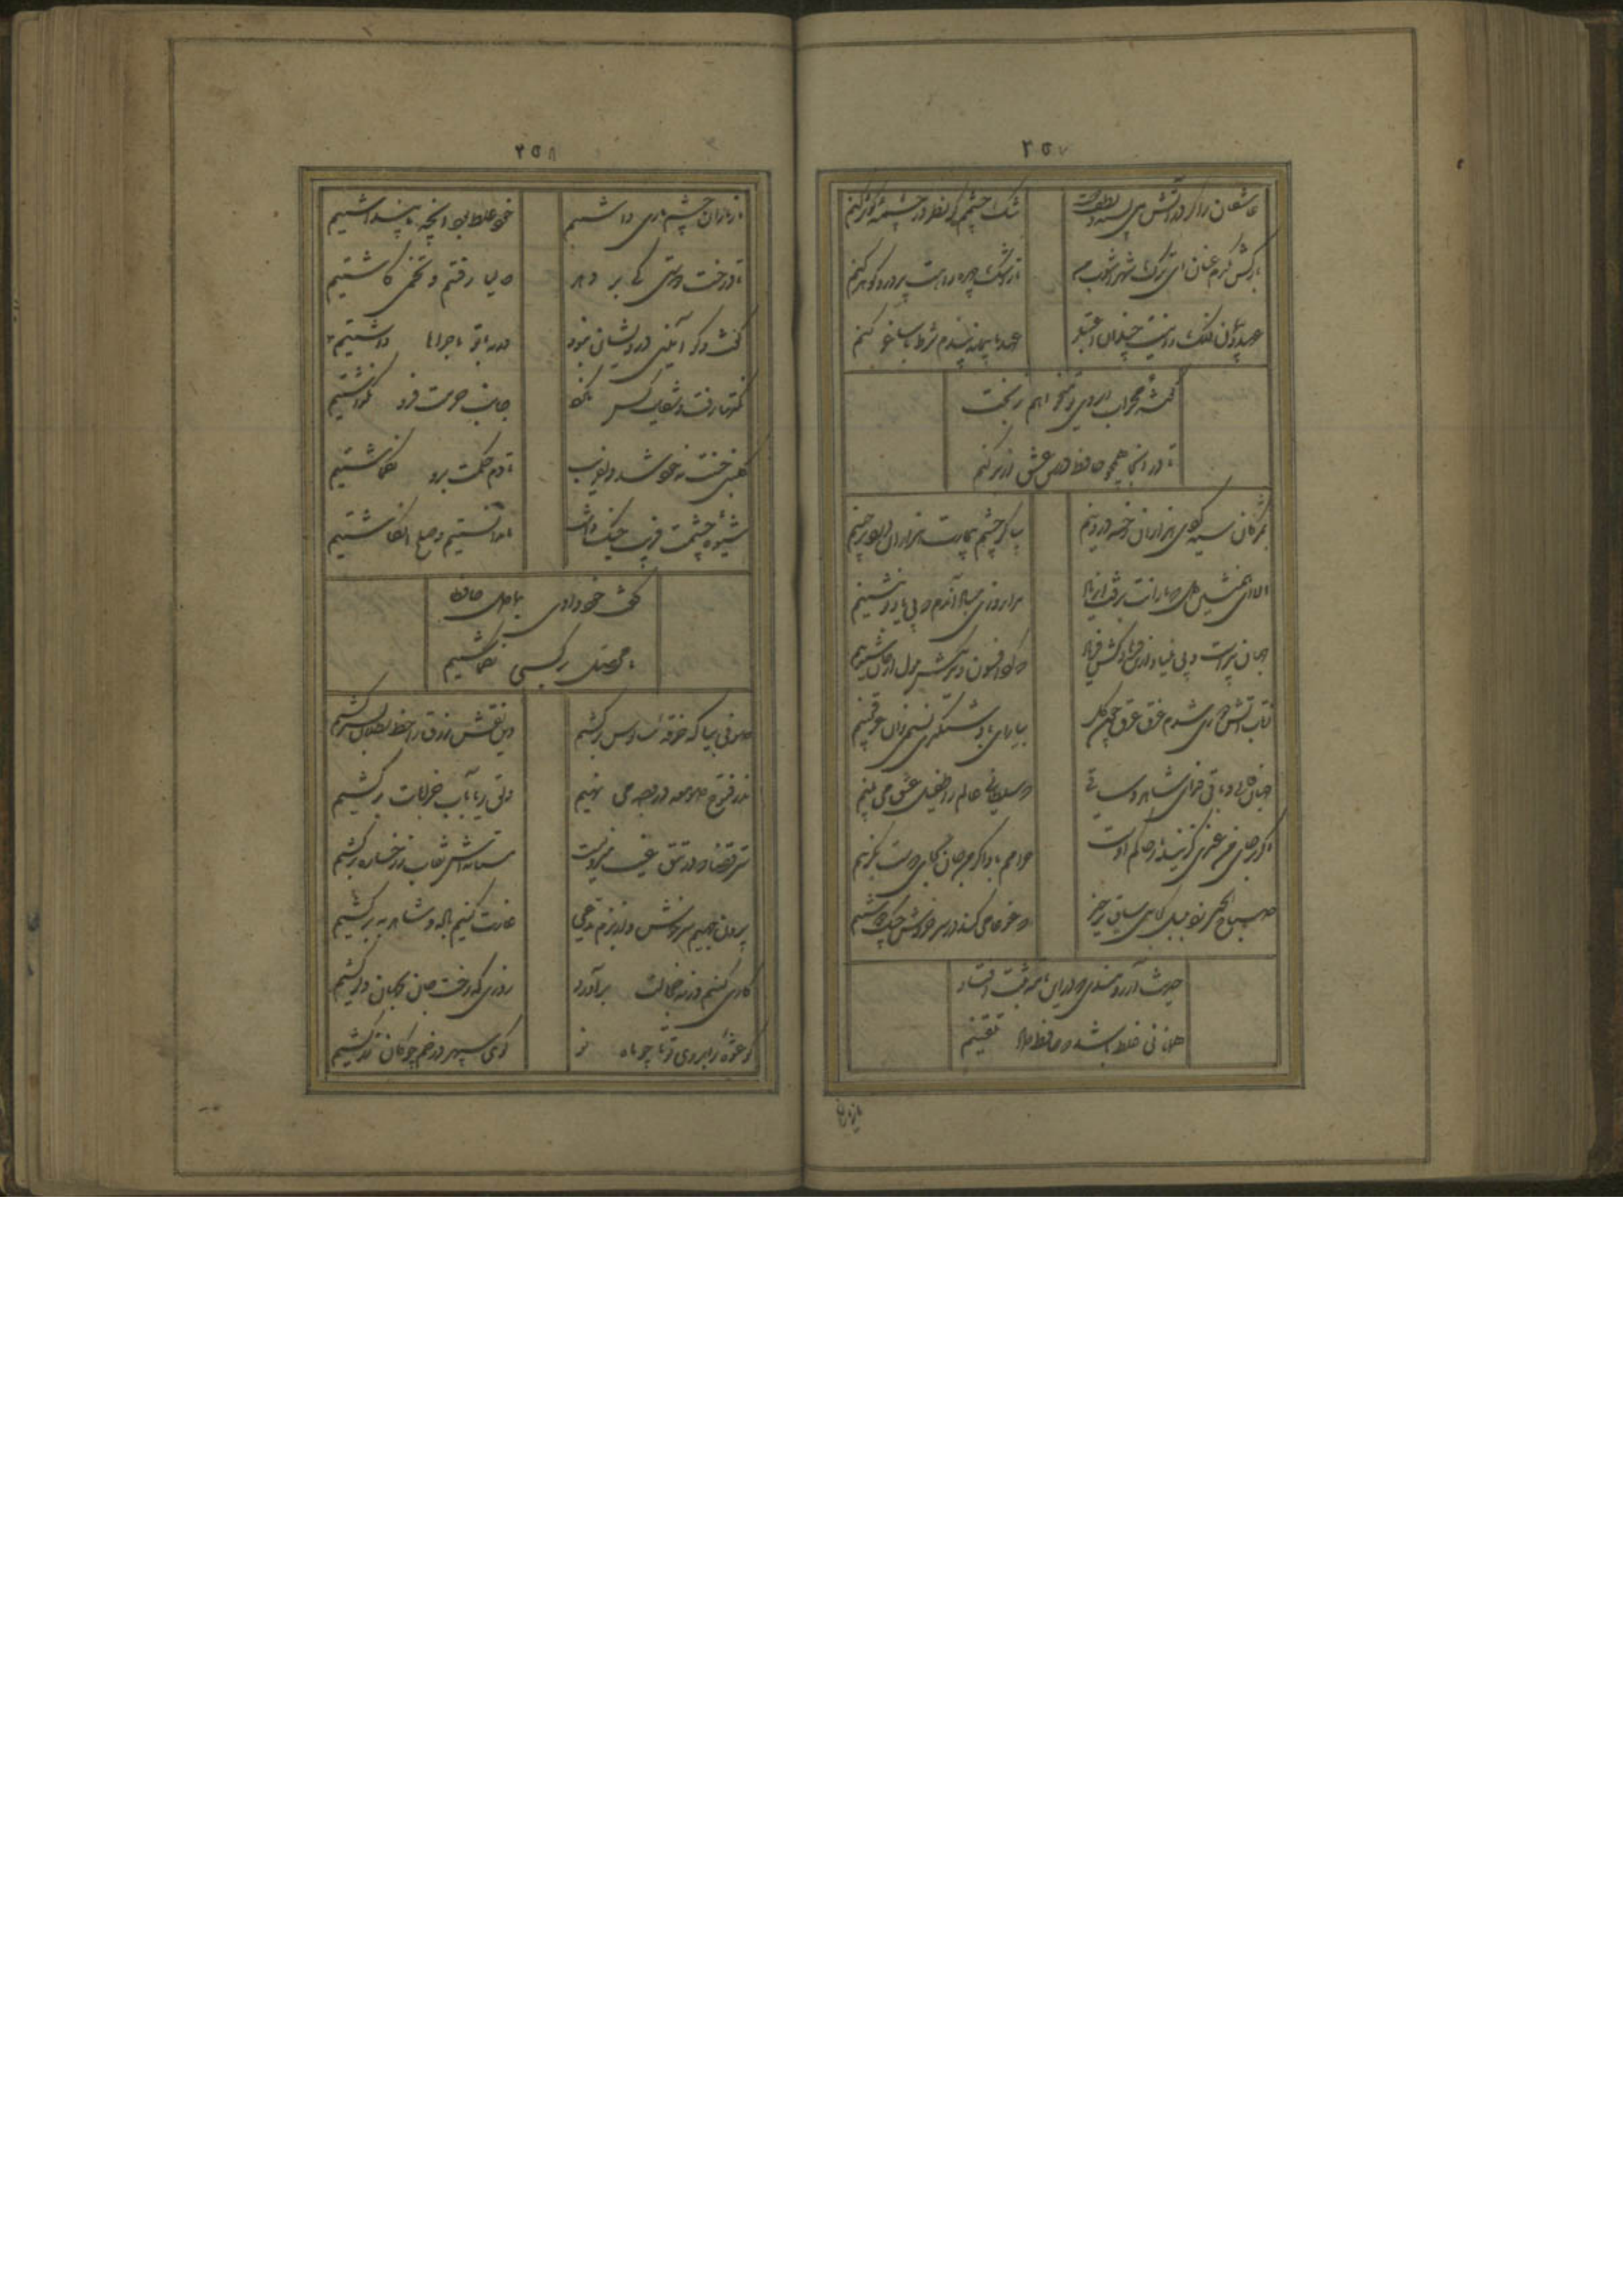 ۲۵۷
عاشقان را گر در آتش می پسندد لطف دوست
تنگ چشمم گر نظر در چشمه کوثر کنم
بازکش یکدم عنان ای ترک شهرآشوب من
تا ز اشک و چهره راهت پر در و گوهر کنم
عهد و پیمان فلک را نیست چندان اعتبار
عهد با پیمانه بندم شرط با ساغر کنم
گوشه محراب ابروی تو میخواهم ز بخت
تا در آنجا همچو حافظ درس عشق از بر کنم
بمژگان سیه کردی هزاران رخنه در دینم
بیا کز چشم بیمارت هزاران درد برچینم
الا ای همنشین دل که یارانت برفت از یاد
مرا روزی مباد آندم که بی یاد تو بنشینم
جهان پیرست و بی بنیاد ازین فرهاد کش فریاد
که کرد افسون و نیرنگش ملول از جان شیرینم
ز تاب آتش دوری شدم غرق عرق چون گل
بیار ای باد شبگیری نسیمی زان عرق چینم
جهان فانی و باقی فدای شاهد و ساقی
که سلطانی عالم را طفیل عشق می بینم
اگر بر جای من غیری گزیند دوست حاکم اوست
حرامم باد اگر من جان بجای دوست بگزینم
صباح الخیر زد بلبل کجایی ساقیا برخیز
که غوغا می کند در سر خروش چنگ دوشینم
حدیث آرزومندی که در این نامه ثبت افتاد
همانا بی غلط باشد که حافظ داد تلقینم
۲۵۸
ما ز یاران چشم یاری داشتیم
خود غلط بود آنچه ما پنداشتیم
تا درخت دوستی کی بر دهد
حالیا رفتیم و تخمی کاشتیم
گفت و گو آیین درویشان نبود
ورنه با تو ماجراها داشتیم
نکته‌ها رفت و شکایت کس نکرد
جانب حرمت فرو نگذاشتیم
گلبن حسنت نه خود شد دلفریب
ما دم همت برو بگماشتیم
شیوه چشمت فریب جنگ داشت
ما ندانستیم و صلح انگاشتیم
گفت خود دادی بما دل حافظا
ما محصل بر کسی نگماشتیم
صوفی بیا که خرقه سالوس برکشیم
وین نقش زرق را خط بطلان بسر کشیم
نذر و فتوح صومعه در وجه می نهیم
دلق ریا بآب خرابات برکشیم
سر قضا که در تتق غیب منزویست
مستانه‌اش نقاب ز رخساره برکشیم
بیرون جهیم سرخوش و از بزم مدعی
غارت کنیم باده و شاهد ببر کشیم
کاری کنیم ورنه خجالت برآورد
روزی که رخت جان بجهان دگر کشیم
کو عشوه ز ابروی تو تا چو ماه نو
گوی سپهر در خم چوگان زر کشیم